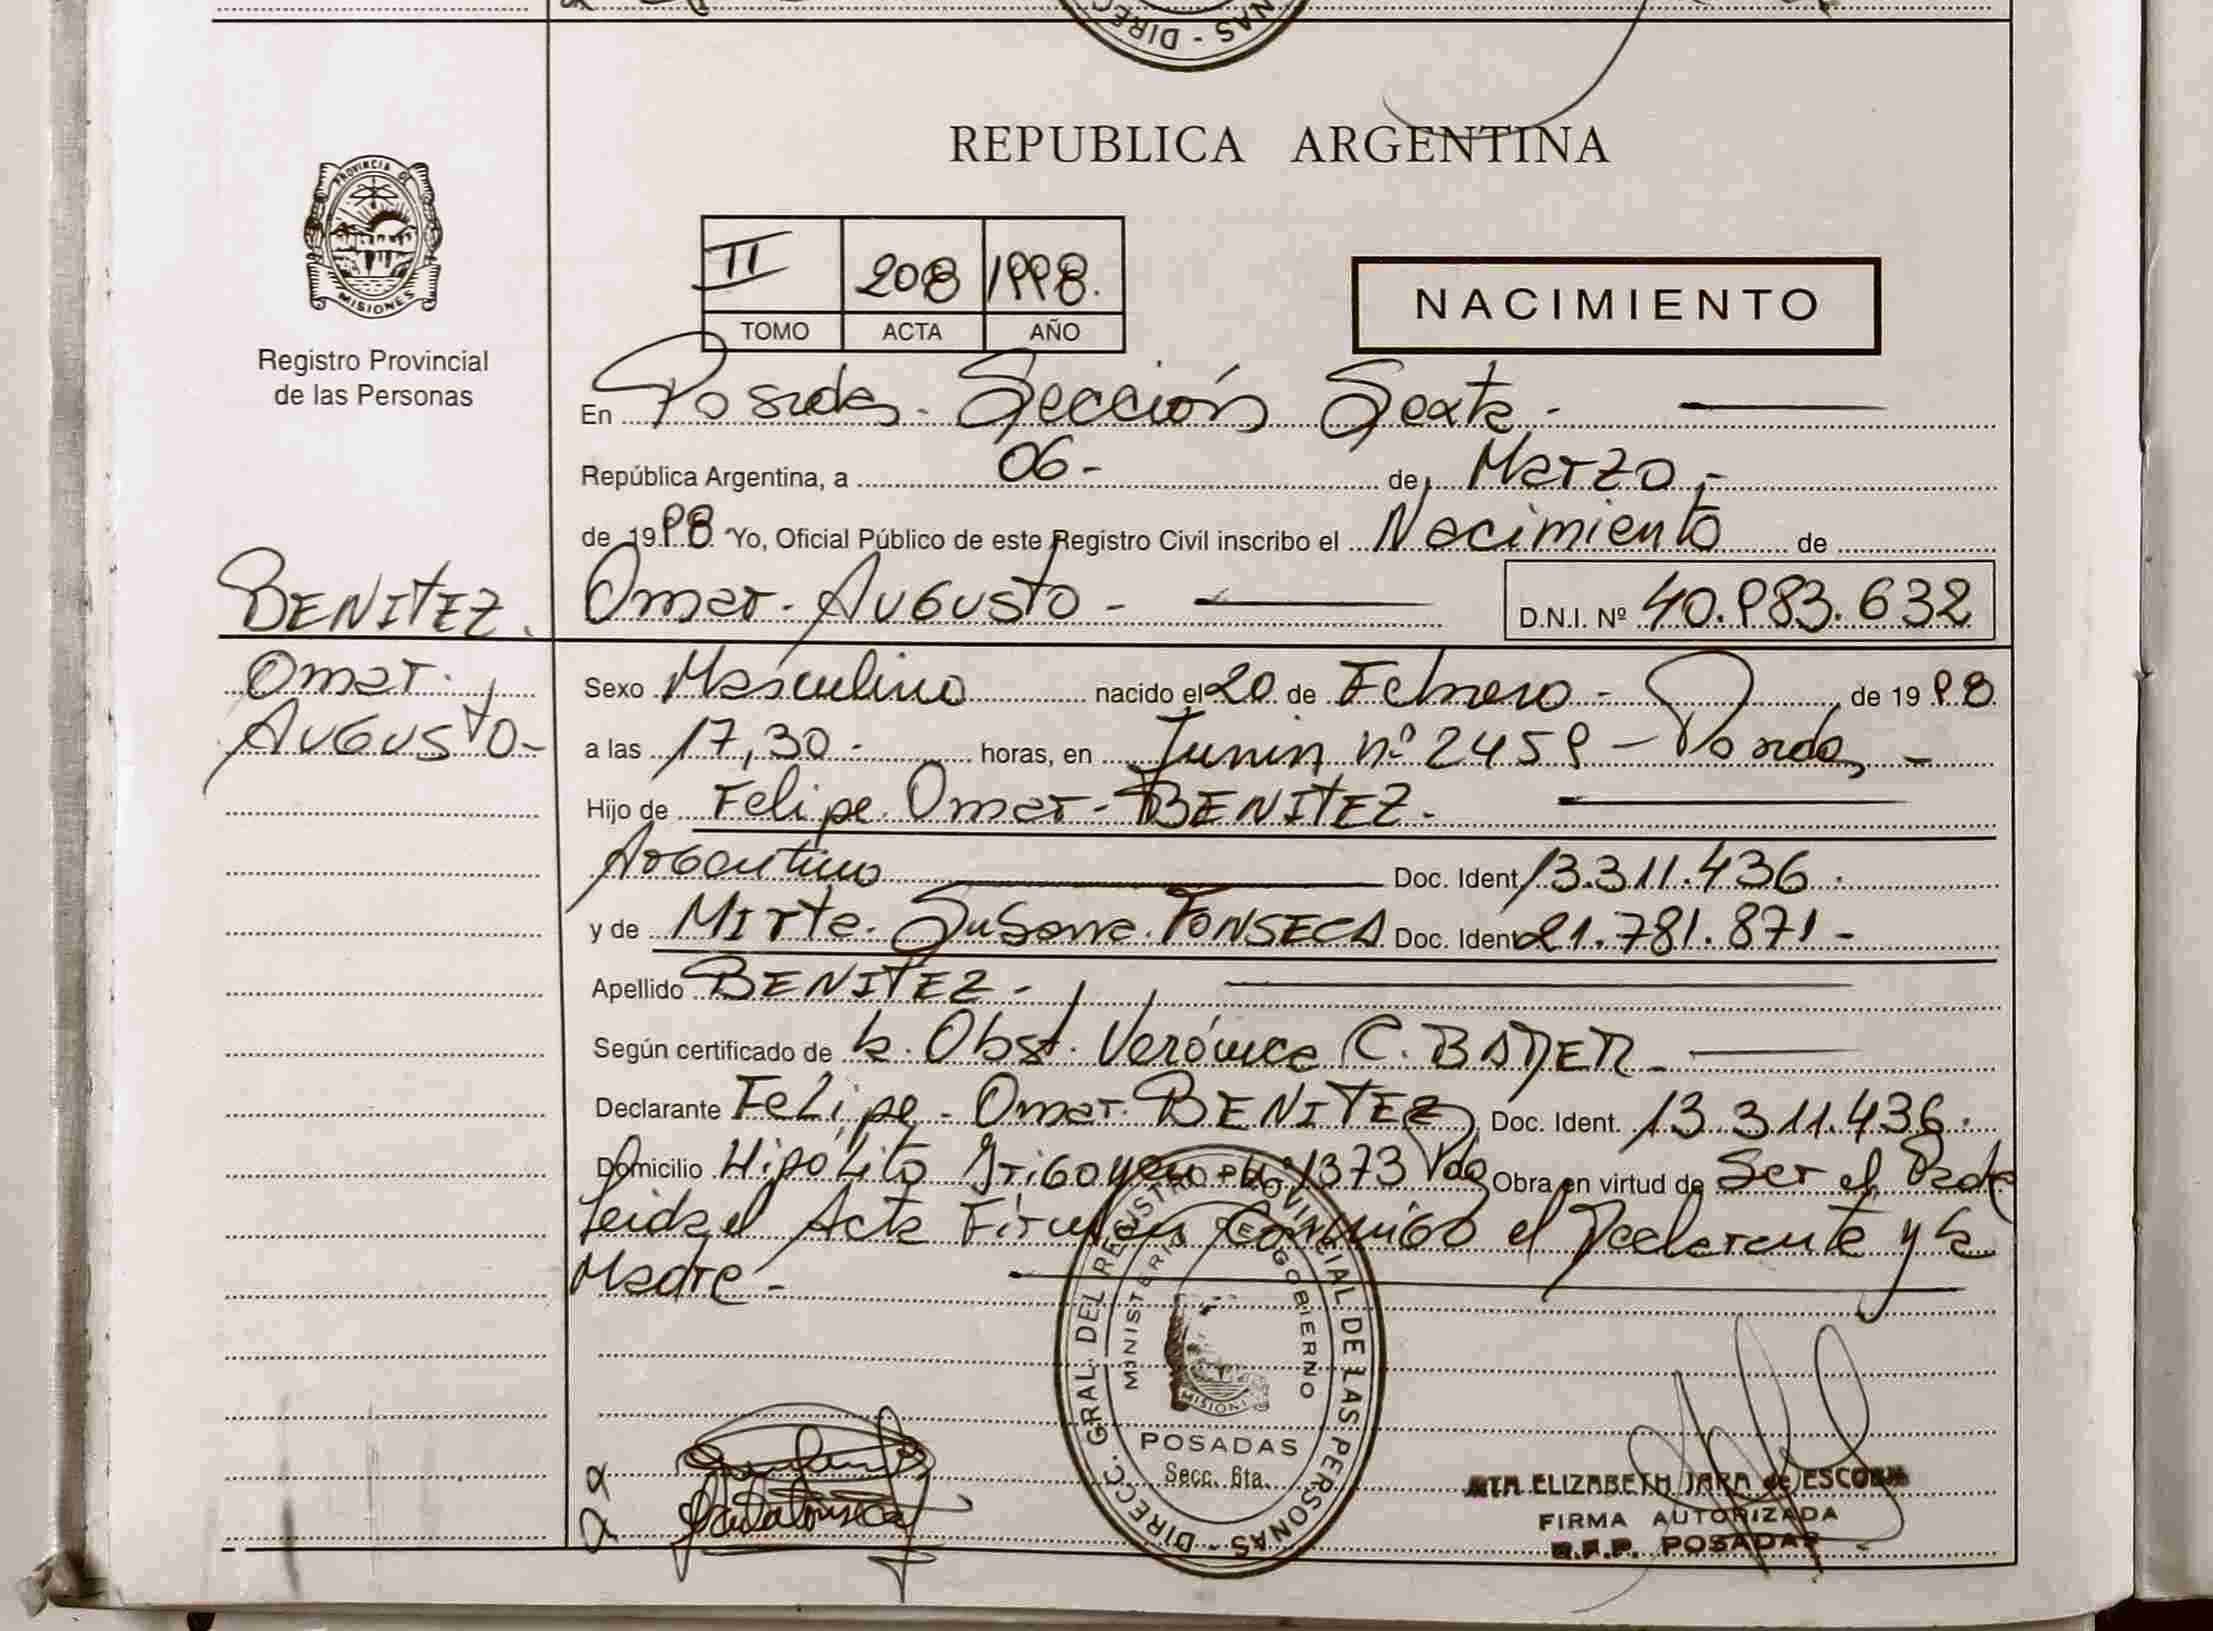 DIRECC. - NAS
REPUBLICA ARGENTINA
PROVINCIA DE
MISIONES
Registro Provincial
de las Personas
II 208 1998.
TOMO ACTA AÑO
NACIMIENTO
En Posadas. Sección Sexta.-
República Argentina, a 06- de Marzo,-
de 1998. Yo, Oficial Público de este Registro Civil inscribo el Nacimiento de
BENITEZ. Omar. Augusto - D.N.I. Nº 40.983.632
Omar.
Augusto-
Sexo Masculino nacido el 20 de Febrero- de 1998.
a las 17,30- horas, en Junin nº 2459 - Posadas, -
Hijo de Felipe Omar- BENITEZ.-
Argentino Doc. Ident. 13.311.436.
y de Mirta. Susana. FONSECA Doc. Ident. 21.781.871-
Apellido BENITEZ-
Según certificado de la Obst. Verónica C.
Declarante Felipe- Omar. BENITEZ, Doc. Ident. 13.311.436.
Domicilio Hipólito Irigoyen nº 1373 Pdas Obra en virtud de Ser el Padre
Leida el Acta Firman Conmigo el Declarante y la
Madre-
DIRECC. GRAL. DEL REGISTRO PROVINCIAL DE LAS PERSONAS -
MINISTERIO DE GOBIERNO
MISIONES
POSADAS
Secc. 6ta.
ELIZABETH JARA de ESCOBAR
FIRMA AUTORIZADA
R.P.P. POSADAS